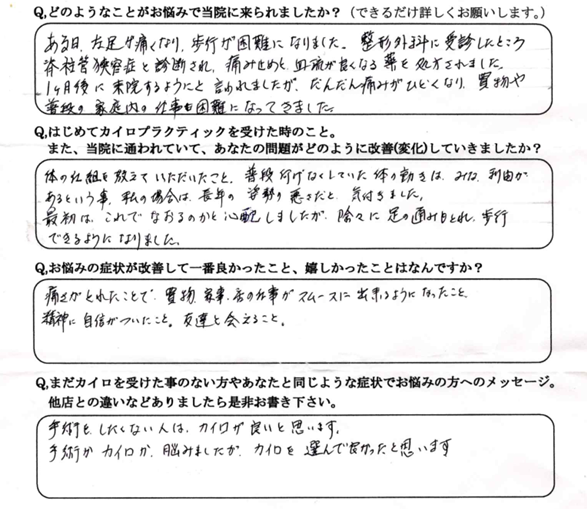 Q,どのようなことがお悩みで当院に来られましたか？（できるだけ詳しくお願いします。）
ある日、左足が痛くなり、歩行が困難になりました。整形外科に受診したところ
脊柱管狭窄症と診断され、痛み止めと血液が良くなる薬を処方されました。
1ヶ月後に来院するようにと言われましたが、だんだん痛みがひどくなり、買物や
普段の家庭内の仕事も困難になってきました。
Q,はじめてカイロプラクティックを受けた時のこと。
また、当院に通われていて、あなたの問題がどのように改善(変化)していきましたか？
体の仕組を教えていただいたこと、普段何げなくしていた体の動きは、みな、利由が
あるという事、私の場合は、長年の姿勢の悪さだと、気付きました。
最初は、これでなおるのかと心配しましたが、除々に足の痛みもとれ、歩行
できるようになりました。
Q,お悩みの症状が改善して一番良かったこと、嬉しかったことはなんですか？
痛さがとれたことで、買物、家事、店の仕事がスムースに出来るようになったこと、
精神に自信がついたこと。友達と会えること。
Q,まだカイロを受けた事のない方やあなたと同じような症状でお悩みの方へのメッセージ。
他店との違いなどありましたら是非お書き下さい。
手術を、したくない人は、カイロが良いと思います。
手術かカイロか、脳みましたが、カイロを選んで良かったと思います